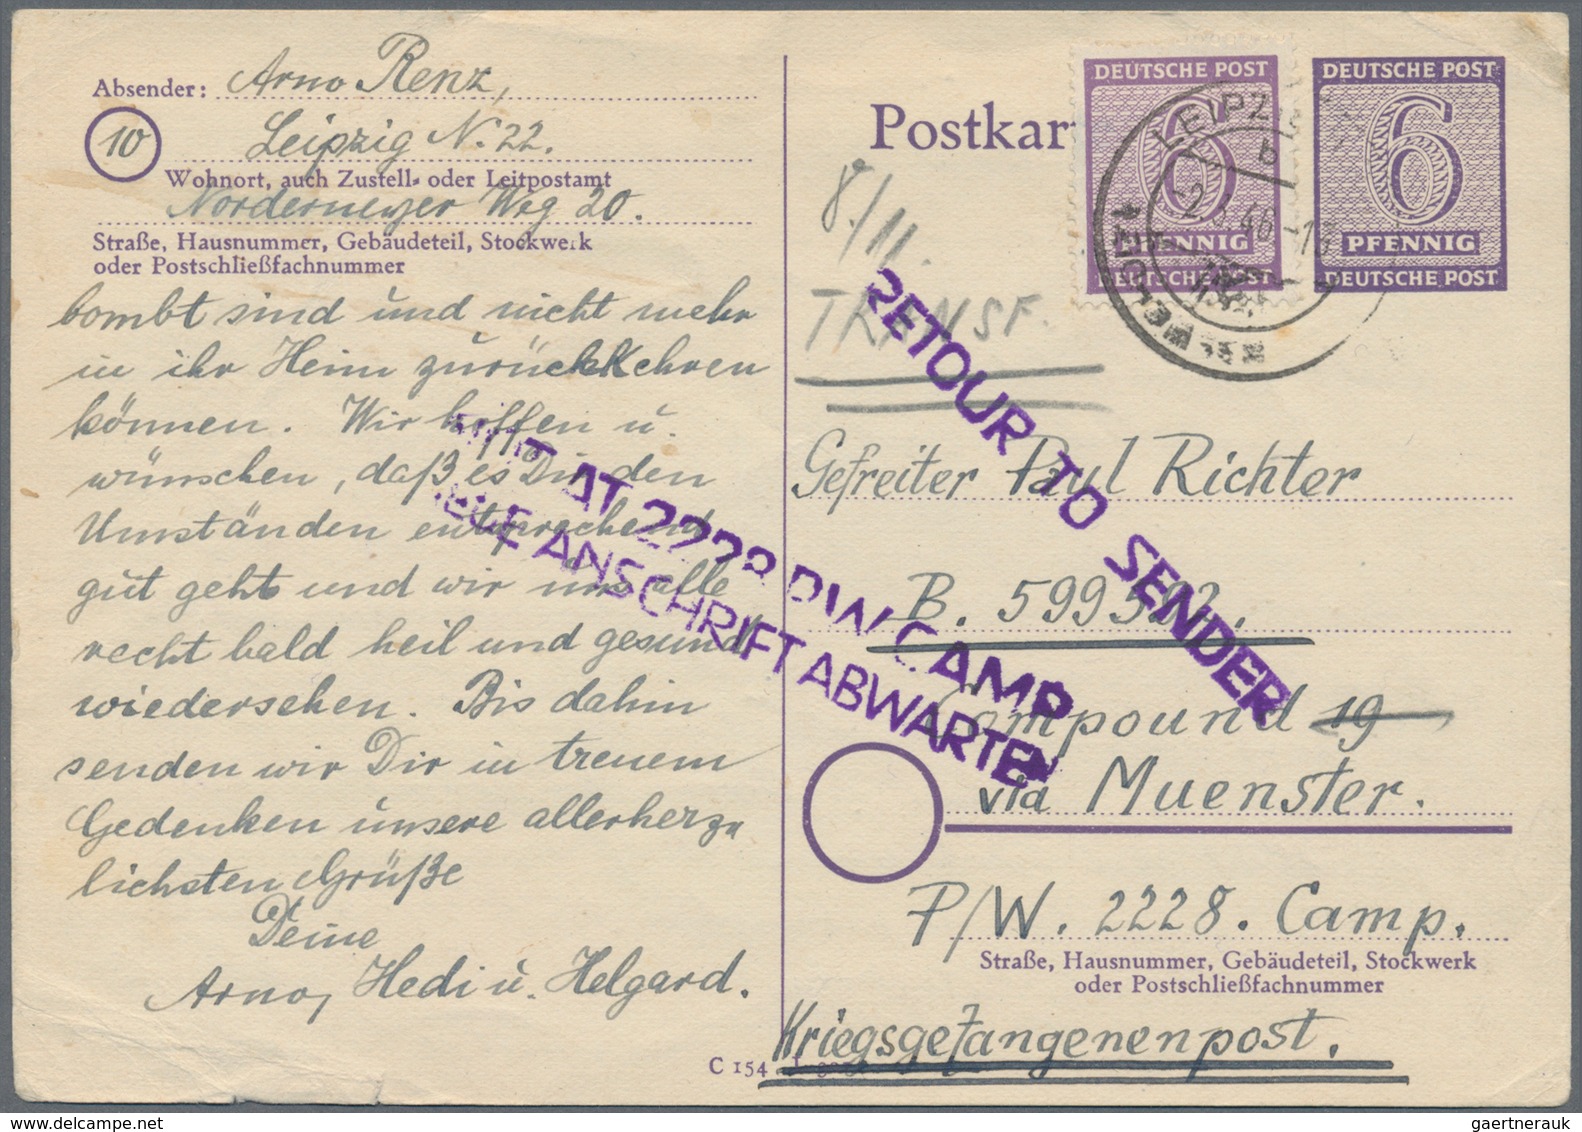 Absender: Arno Renz,
10
Leipzig N. 22.
Wohnort, auch Zustell- oder Leitpostamt
Norderneyer Weg 20.
Straße, Hausnummer, Gebäudeteil, Stockwerk
oder Postschließfachnummer
bombt sind und nicht mehr
in ihr Heim zurückkehren
können. Wir hoffen u.
wünschen, daß es Dir den
Umständen entsprechend
gut geht und wir uns alle
recht bald heil und gesund
wiedersehen. Bis dahin
senden wir Dir in treuem
Gedenken unsere allerherz-
lichsten Grüße
Deine
Arno, Hedi u. Helgard.
Postkar
DEUTSCHE POST
6
PFENNIG
DEUTSCHE POST
DEUTSCHE POST
6
PFENNIG
DEUTSCHE POST
LEIPZ
b
46
8./11.
TRANSF.
RETOUR TO SENDER
AT 2228 P.W. CAMP
ANSCHRIFT ABWARTEN
Gefreiter Paul Richter
B. 599592.
Compound 19
via Muenster.
P/W. 2228. Camp.
Straße, Hausnummer, Gebäudeteil, Stockwerk
oder Postschließfachnummer
Kriegsgefangenenpost.
C 154
gaertnerauk